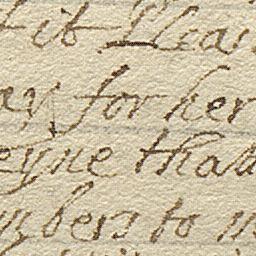 it Pleas
ay for her
eyne that
mbers to m